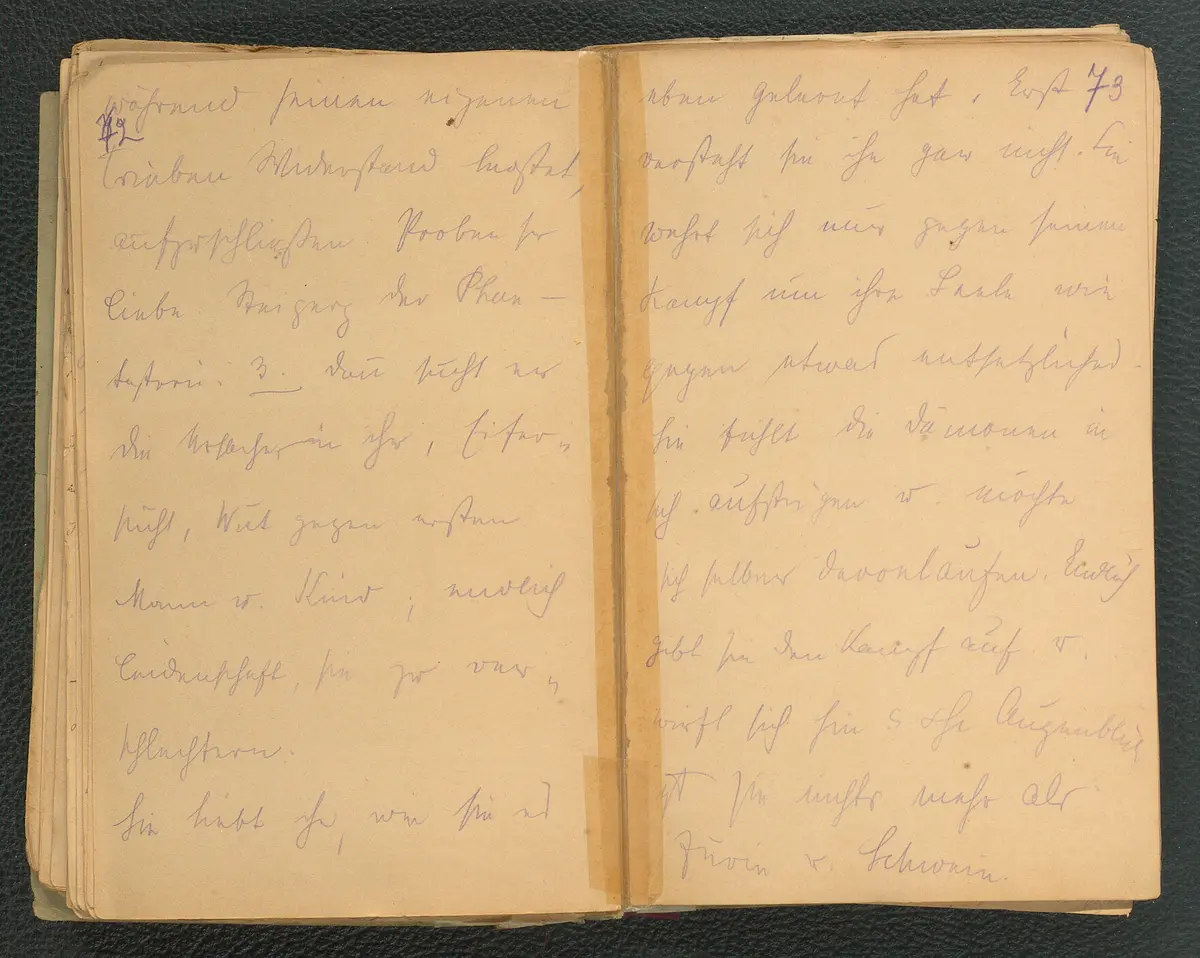 72
während seinen eigenen
Trieben Widerstand leistet,
aufzuschließen. Proben der
Liebe. Steigerg der Phan-
tasterei. 3. Dann sucht er
die Ursache in ihr, Eifer-
sucht, Wut gegen ersten
Mann u. Kind; endlich
Leidenschaft, sie zu ver-
schlechtern.
Sie liebt ihn, wie sie es
73
eben gelernt hat. Erst
versteht sie ihn gar nicht. Sie
wehrt sich nur gegen seinen
Kampf um ihre Seele wie
gegen etwas entsetzliches.
Sie fühlt die Dämonen in
sich aufsteigen u. möchte
sich selber davonlaufen. Endlich
gibt sie den Kampf auf u.
wirft sich hin Augenblick
ist sie nichts mehr als
Furie u. Schwein.